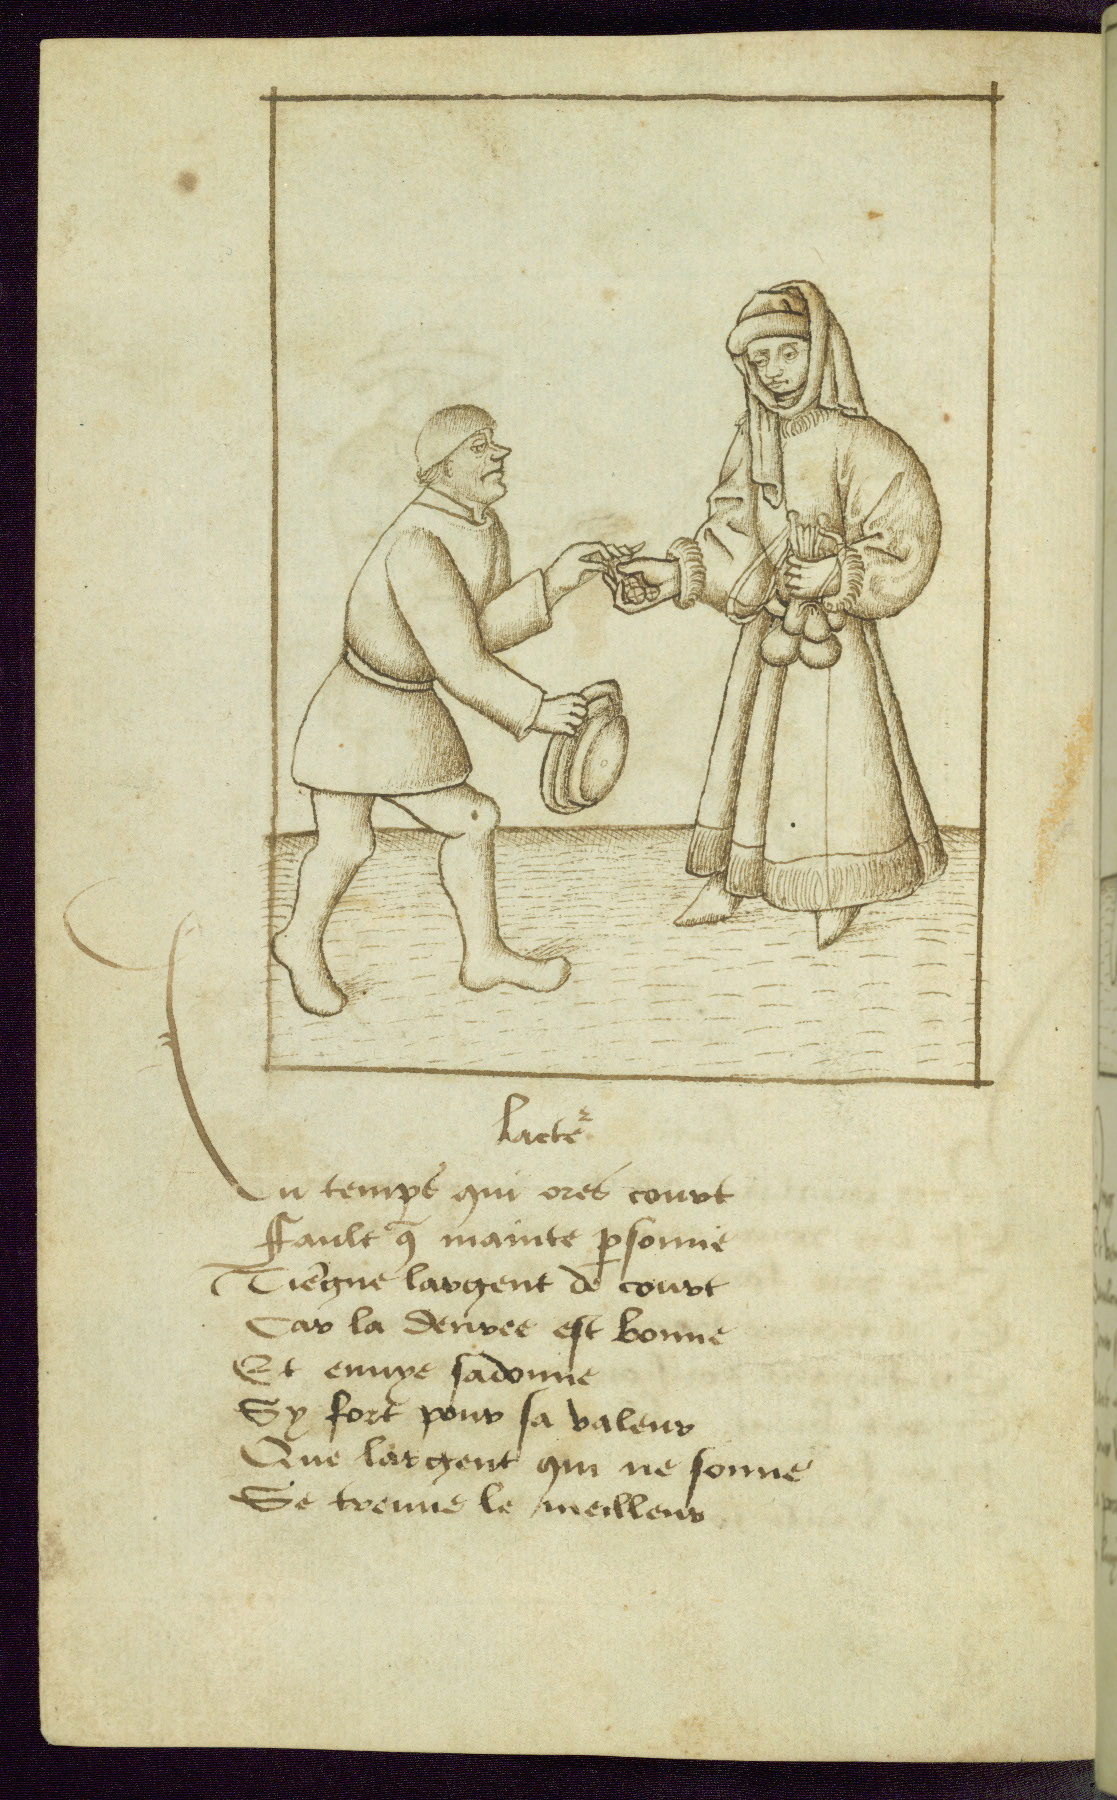 Lacteur
Au temps qui ores court
Fault q̄ mainte ꝑsonne
Tiēgne largent de court
Car la denree est bonne
Et enuye sadonne
Sy fort pour sa valeur
Que largent qui ne sonne
Se treuue le meilleur